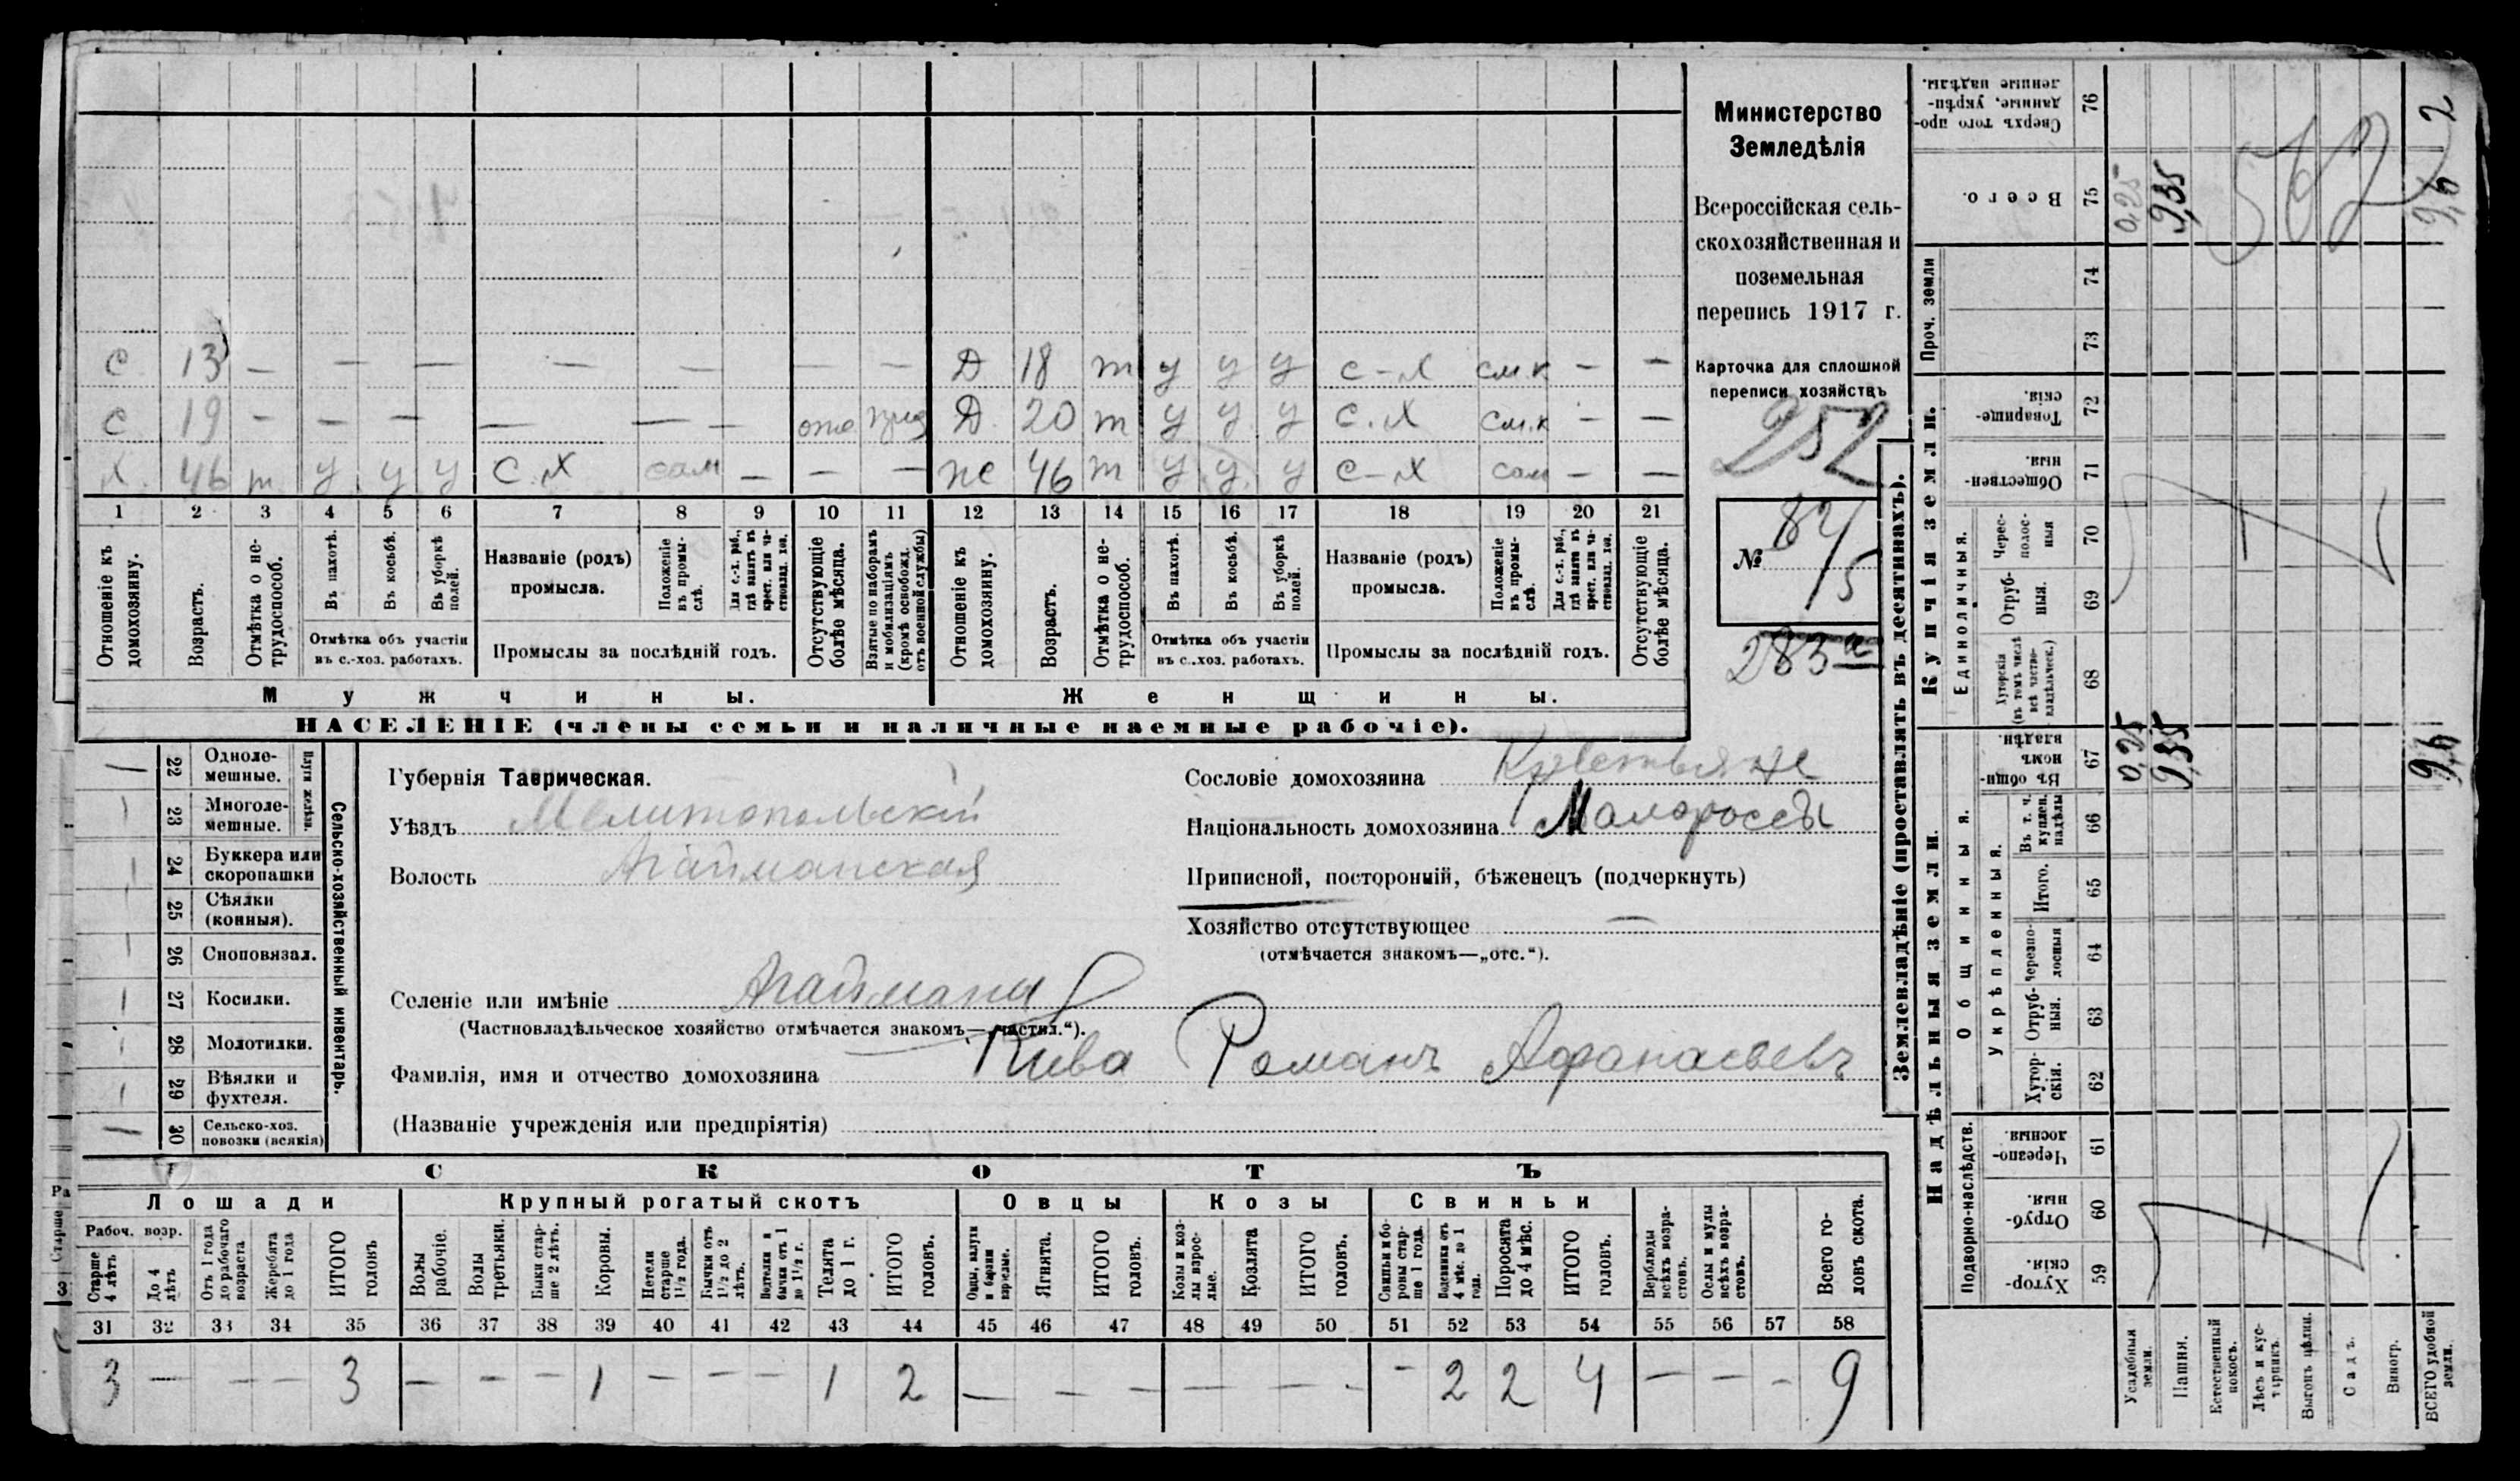 Министерство
Земледѣлія
Всероссійская сель-
скохозяйственная и
поземельная
перепись 1917 г.
Карточка для сплошной
переписи хозяйствъ
252
№ 82/5
283а
С 13 — — — — — — — — — Д 18 т у у у с-х см.к — —
С 19 — — — — — — — отс приз Д 20 т у у у с.х см.к — —
Х. 46 т у у у с.х сам — — — Ж 46 т у у у с-х сам — —
1 2 3 4 5 6 7 8 9 10 11 12 13 14 15 16 17 18 19 20 21
Отношеніе къ домохозяину.
Возрастъ.
Отмѣтка о не-трудоспособ.
Въ пахотѣ.
Въ косьбѣ.
Въ уборкѣ полей.
Отмѣтка объ участіи въ с.-хоз. работахъ.
Названіе (родъ) промысла.
Положеніе въ промы-слѣ.
Для с.-х. раб., гдѣ занятъ въ крест. или ча-стновлад. хоз.
Промыслы за послѣдній годъ.
Отсутствующіе болѣе мѣсяца.
Взятые по наборамъ и мобилизаціямъ (кромѣ освобожд. отъ военной службы)
Отношеніе къ домохозяину.
Возрастъ.
Отмѣтка о не-трудоспособ.
Въ пахотѣ.
Въ косьбѣ.
Въ уборкѣ полей.
Отмѣтка объ участіи въ с.-хоз. работахъ.
Названіе (родъ) промысла.
Положеніе въ промы-слѣ.
Для с.-х. раб., гдѣ занятъ въ крест. или ча-стновлад. хоз.
Промыслы за послѣдній годъ.
Отсутствующіе болѣе мѣсяца.
Мужчины. Женщины.
НАСЕЛЕНІЕ (члены семьи и наличные наемные рабочіе).
Сельско-хозяйственный инвентарь.
Плуги желѣзн.
— 22 Одноле-мешные.
| 23 Многоле-мешные.
| 24 Буккера или скоропашки
25 Сѣялки (конныя).
| 26 Сноповязал.
| 27 Косилки.
28 Молотилки.
| 29 Вѣялки и фухтеля.
— 30 Сельско-хоз. повозки (всякія)
Губернія Таврическая.
Уѣздъ Мелитопольскій
Волость Агайманская
Селеніе или имѣніе Агайманы
(Частновладѣльческое хозяйство отмѣчается знакомъ—„частвл.“).
Фамилія, имя и отчество домохозяина Кива Романъ Афанасьевъ
(Названіе учрежденія или предпріятія)
Сословіе домохозяина Крестьяне
Національность домохозяина Малороссы
Приписной, посторонній, бѣженецъ (подчеркнуть)
Хозяйство отсутствующее —
(отмѣчается знакомъ—„отс.“).
СКОТЪ
Лошади Крупный рогатый скотъ Овцы Козы Свиньи
Рабоч. возр.
Старше 4 лѣтъ
До 4 лѣтъ
Отъ 1 года до рабочаго возраста
Жеребята до 1 года
ИТОГО головъ
Волы рабочіе.
Волы третьяки.
Быки стар-ше 2 лѣтъ.
Коровы.
Нетели старше 1½ года.
Бычки отъ 1½ до 2 лѣтъ.
бычки отъ 1 до 1½ г.
Телята до 1 г.
ИТОГО головъ.
Овцы, валухи и бараны взрослые.
Ягнята.
ИТОГО головъ.
Козы и коз-лы взрос-лые.
Козлята
ИТОГО головъ.
Свиньи и бо-ровы стар-ше 1 года.
Подсвинки отъ 4 мѣс. до 1 года.
Поросята до 4 мѣс.
ИТОГО головъ.
Верблюды всѣхъ возра-стовъ.
Ослы и мулы всѣхъ возра-стовъ.
Всего го-ловъ скота.
31 32 33 34 35 36 37 38 39 40 41 42 43 44 45 46 47 48 49 50 51 52 53 54 55 56 57 58
3 — — — 3 — — — 1 — — — 1 2 — — — — — — - 2 2 4 — — — 9
Землевладѣніе (проставлять въ десятинахъ).
Надѣльныя земли.
Подворно-наслѣдств.
Хутор-скія. 59
Отруб-ныя. 60
Черезпо-лосныя. 61
Общинныя.
Укрѣпленныя.
Хутор-скія. 62
Отруб-ныя. 63
Черезпо-лосныя 64
Итого. 65
Въ т. ч. куплен. надѣлы 66
Въ общи-номъ владѣн. 67
Купчія земли.
Единоличныя.
Хуторскія (въ томъ числѣ всѣ частно-владѣльческ.) 68
Отруб-ныя. 69
Черес-полос-ныя 70
Обществен-ныя. 71
Товарище-скія. 72
Проч. земли
73 74
Всего. 75
Сверхъ того про-данные, укрѣп-ленные надѣлы. 76
Усадебныя земли. 0,25 0,25
Пашня. 9,35 9,35
Естественный покосъ.
Лѣсъ и кус-тарникъ.
Выгонъ цѣлин.
Садъ.
Виногр.
ВСЕГО удобной земли. 9,6 9,6 2
562